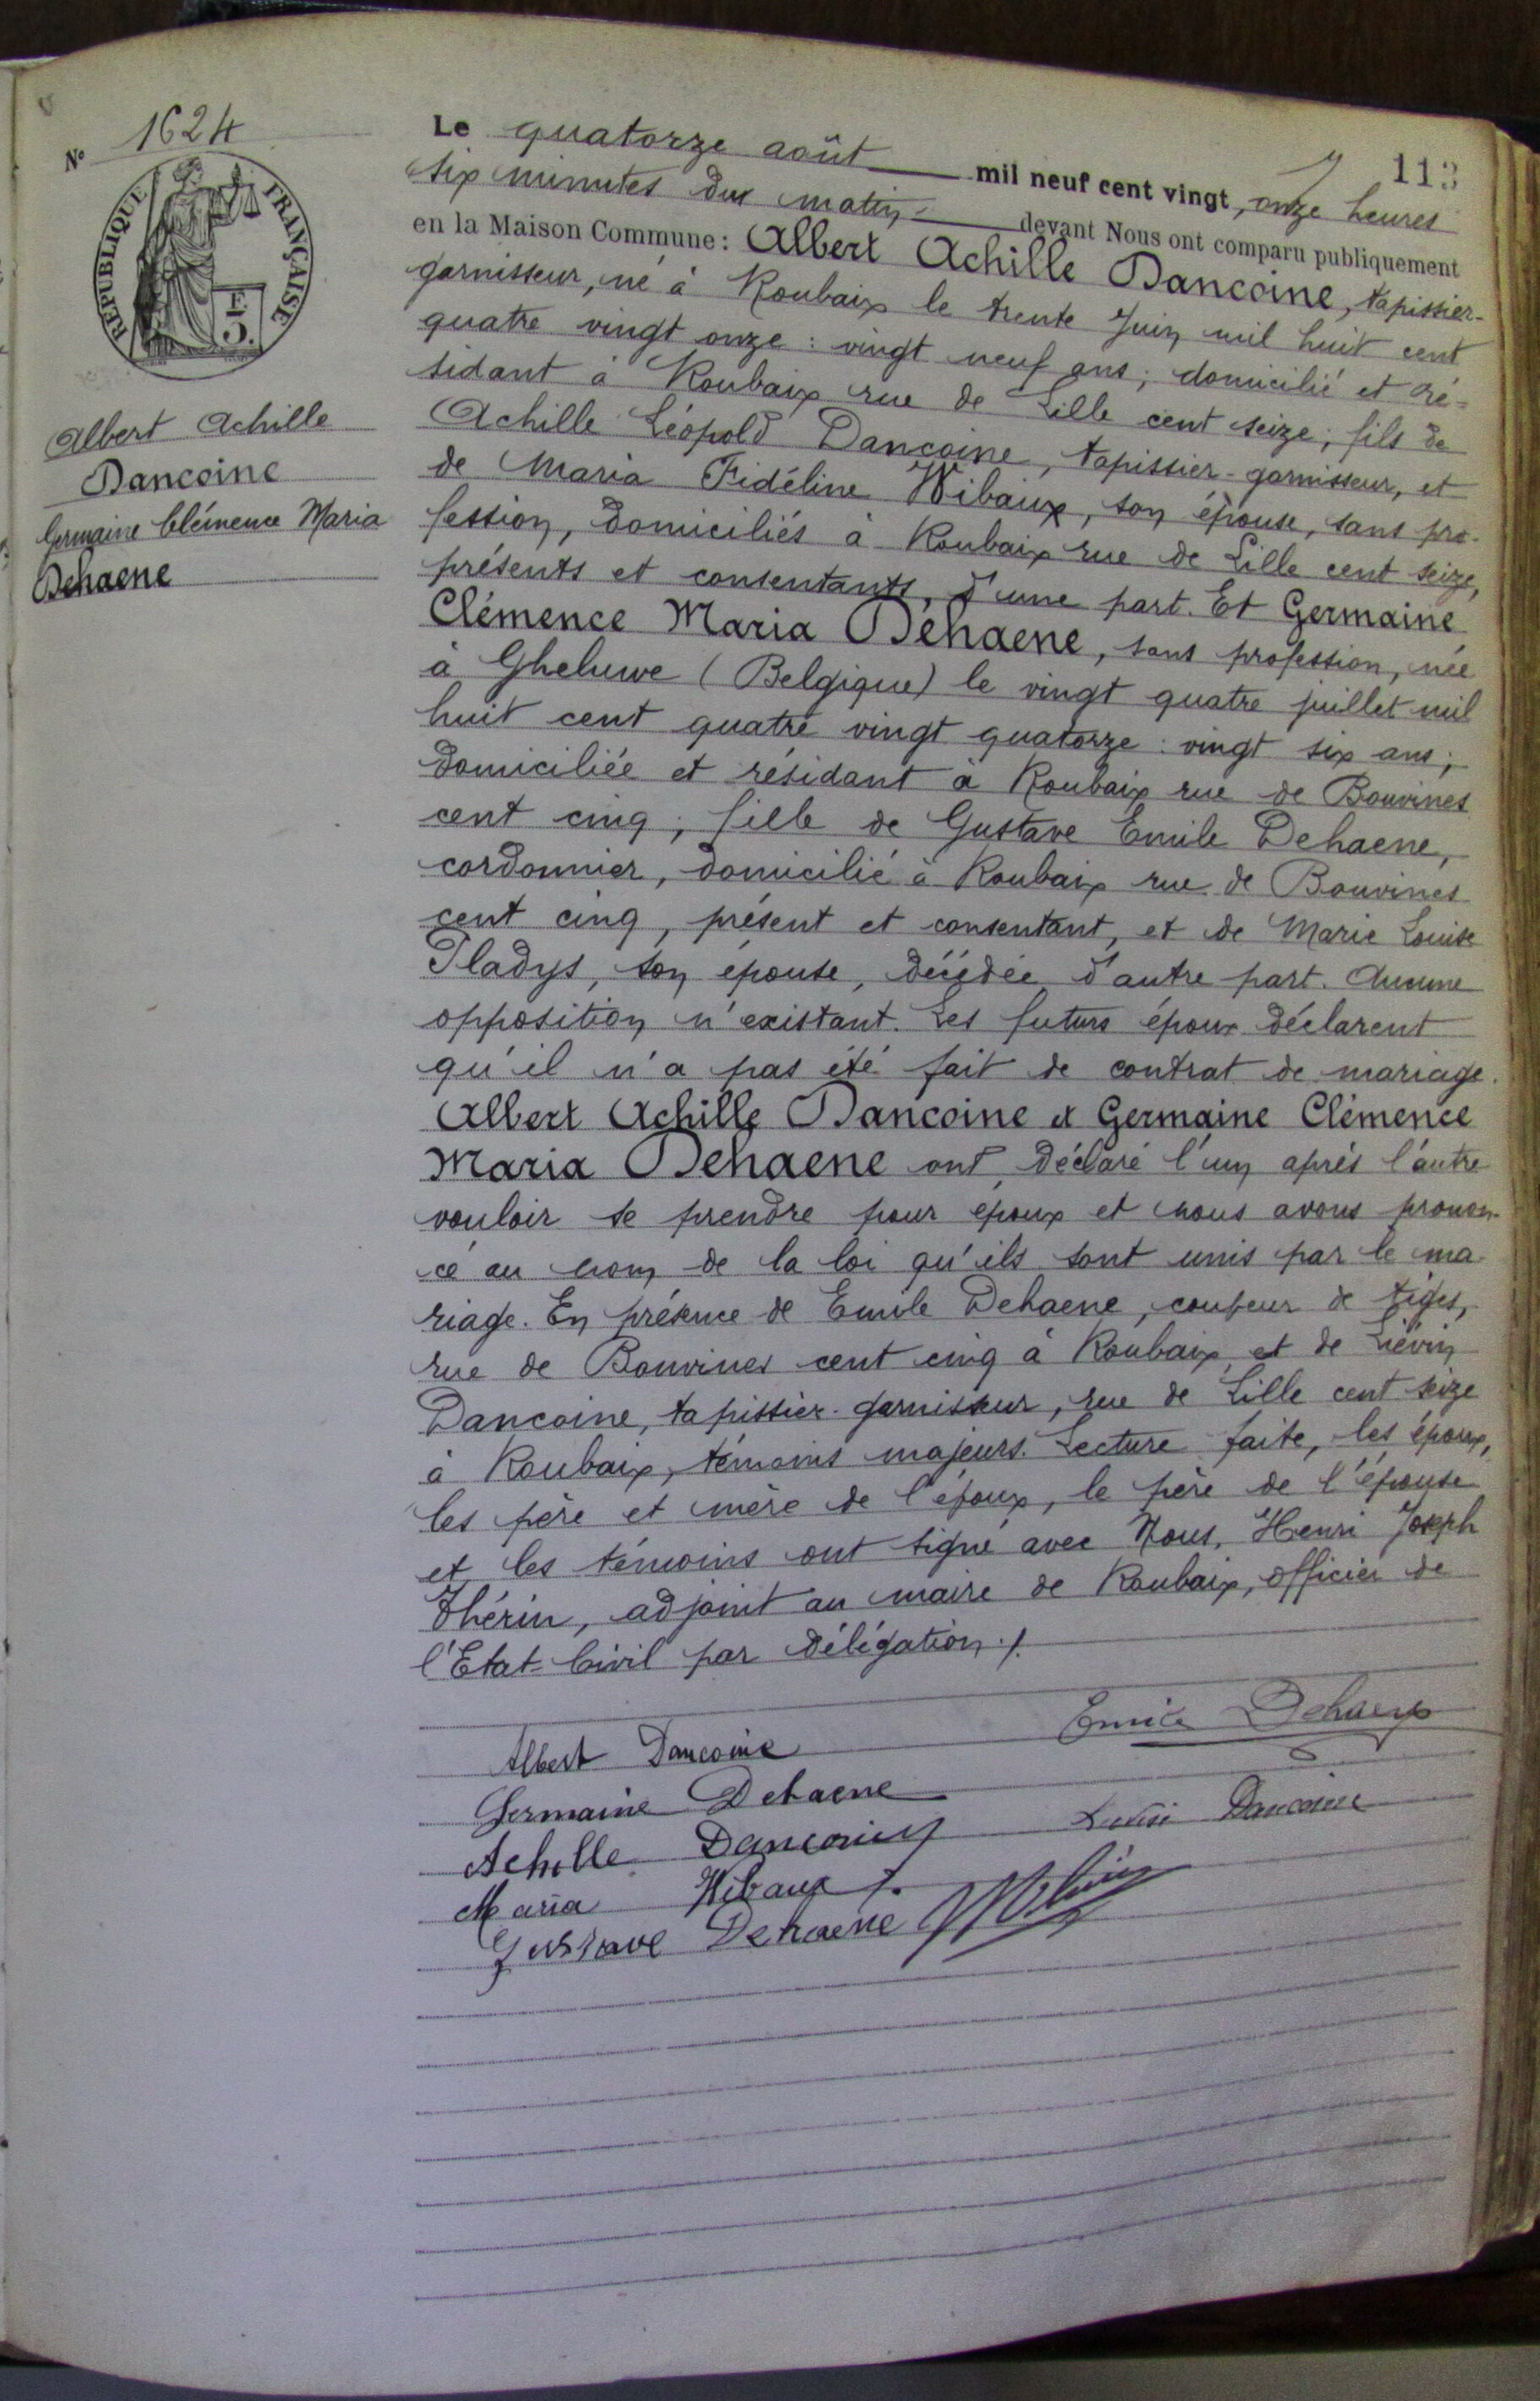 N° 1624
RÉPUBLIQUE FRANÇAISE
F.
3.
Albert Achille
Dancoine
Germaine Clémence Maria
Dehaene
113
Le quatorze août mil neuf cent vingt, onze heures
six minutes du matin devant Nous ont comparu publiquement
en la Maison Commune : Albert Achille Dancoine, tapissier-
garnisseur, né à Roubaix le trente Juin mil huit cent
quatre vingt onze : vingt neuf ans ; domicilié et ré-
sidant à Roubaix rue de Lille cent seize ; fils de
Achille Léopold Dancoine, tapissier-garnisseur, et
de Maria Fidéline Wibaux, son épouse, sans pro-
fession, domiciliés à Roubaix rue de Lille cent seize,
présents et consentants, d'une part. Et Germaine
Clémence Maria Dehaene, sans profession, née
à Gheluwe (Belgique) le vingt quatre juillet mil
huit cent quatre vingt quatorze : vingt six ans ;
domiciliée et résidant à Roubaix rue de Bouvines
cent cinq ; fille de Gustave Emile Dehaene,
cordonnier, domicilié à Roubaix rue de Bouvines
cent cinq, présent et consentant, et de Marie Louise
Pladys, son épouse, décédée, d'autre part. Aucune
opposition n'existant. Les futurs époux déclarent
qu'il n'a pas été fait de contrat de mariage.
Albert Achille Dancoine et Germaine Clémence
Maria Dehaene ont déclaré l'un après l'autre
vouloir se prendre pour époux et nous avons pronon-
cé au nom de la loi qu'ils sont unis par le ma-
riage. En présence de Emile Dehaene, coupeur de tiges,
rue de Bouvines cent cinq à Roubaix, et de Liévin
Dancoine, tapissier-garnisseur, rue de Lille cent seize
à Roubaix, témoins majeurs. Lecture faite, les époux,
les père et mère de l'époux, le père de l'épouse
et les témoins ont signé avec Nous, Henri Joseph
Thérin, adjoint au maire de Roubaix, officier de
l'Etat-Civil par délégation ./.
Albert Dancoine
Emile Dehaene
Germaine Dehaene
Achille Dancoine
Dancoine
Maria Wibaux
Gustave Dehaene